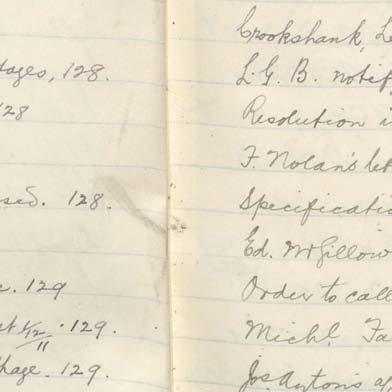 tages, 128.
128
sed. 128.
c. 129
st 1/12/11 . 129.
hage. 129.
Crookshank, Le
L. G. B. notif
Resolution i
F. Nolan's let
Specificati
Ed. McGillow
Order to call
Michl. Fa
Jos.